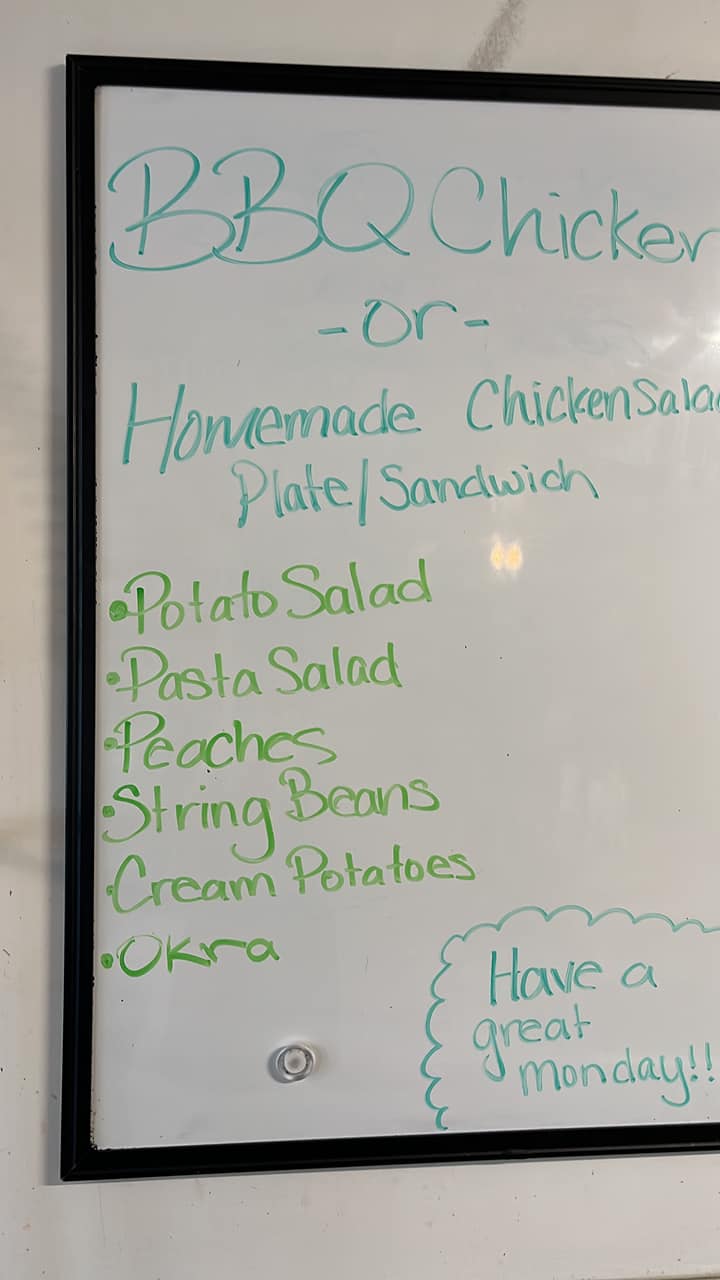 BBQ Chicken
-Or-
Homemade Chicken Salad
Plate/Sandwich
•Potato Salad
•Pasta Salad
•Peaches
•String Beans
•Cream Potatoes
•Okra
Have a
great
monday!!